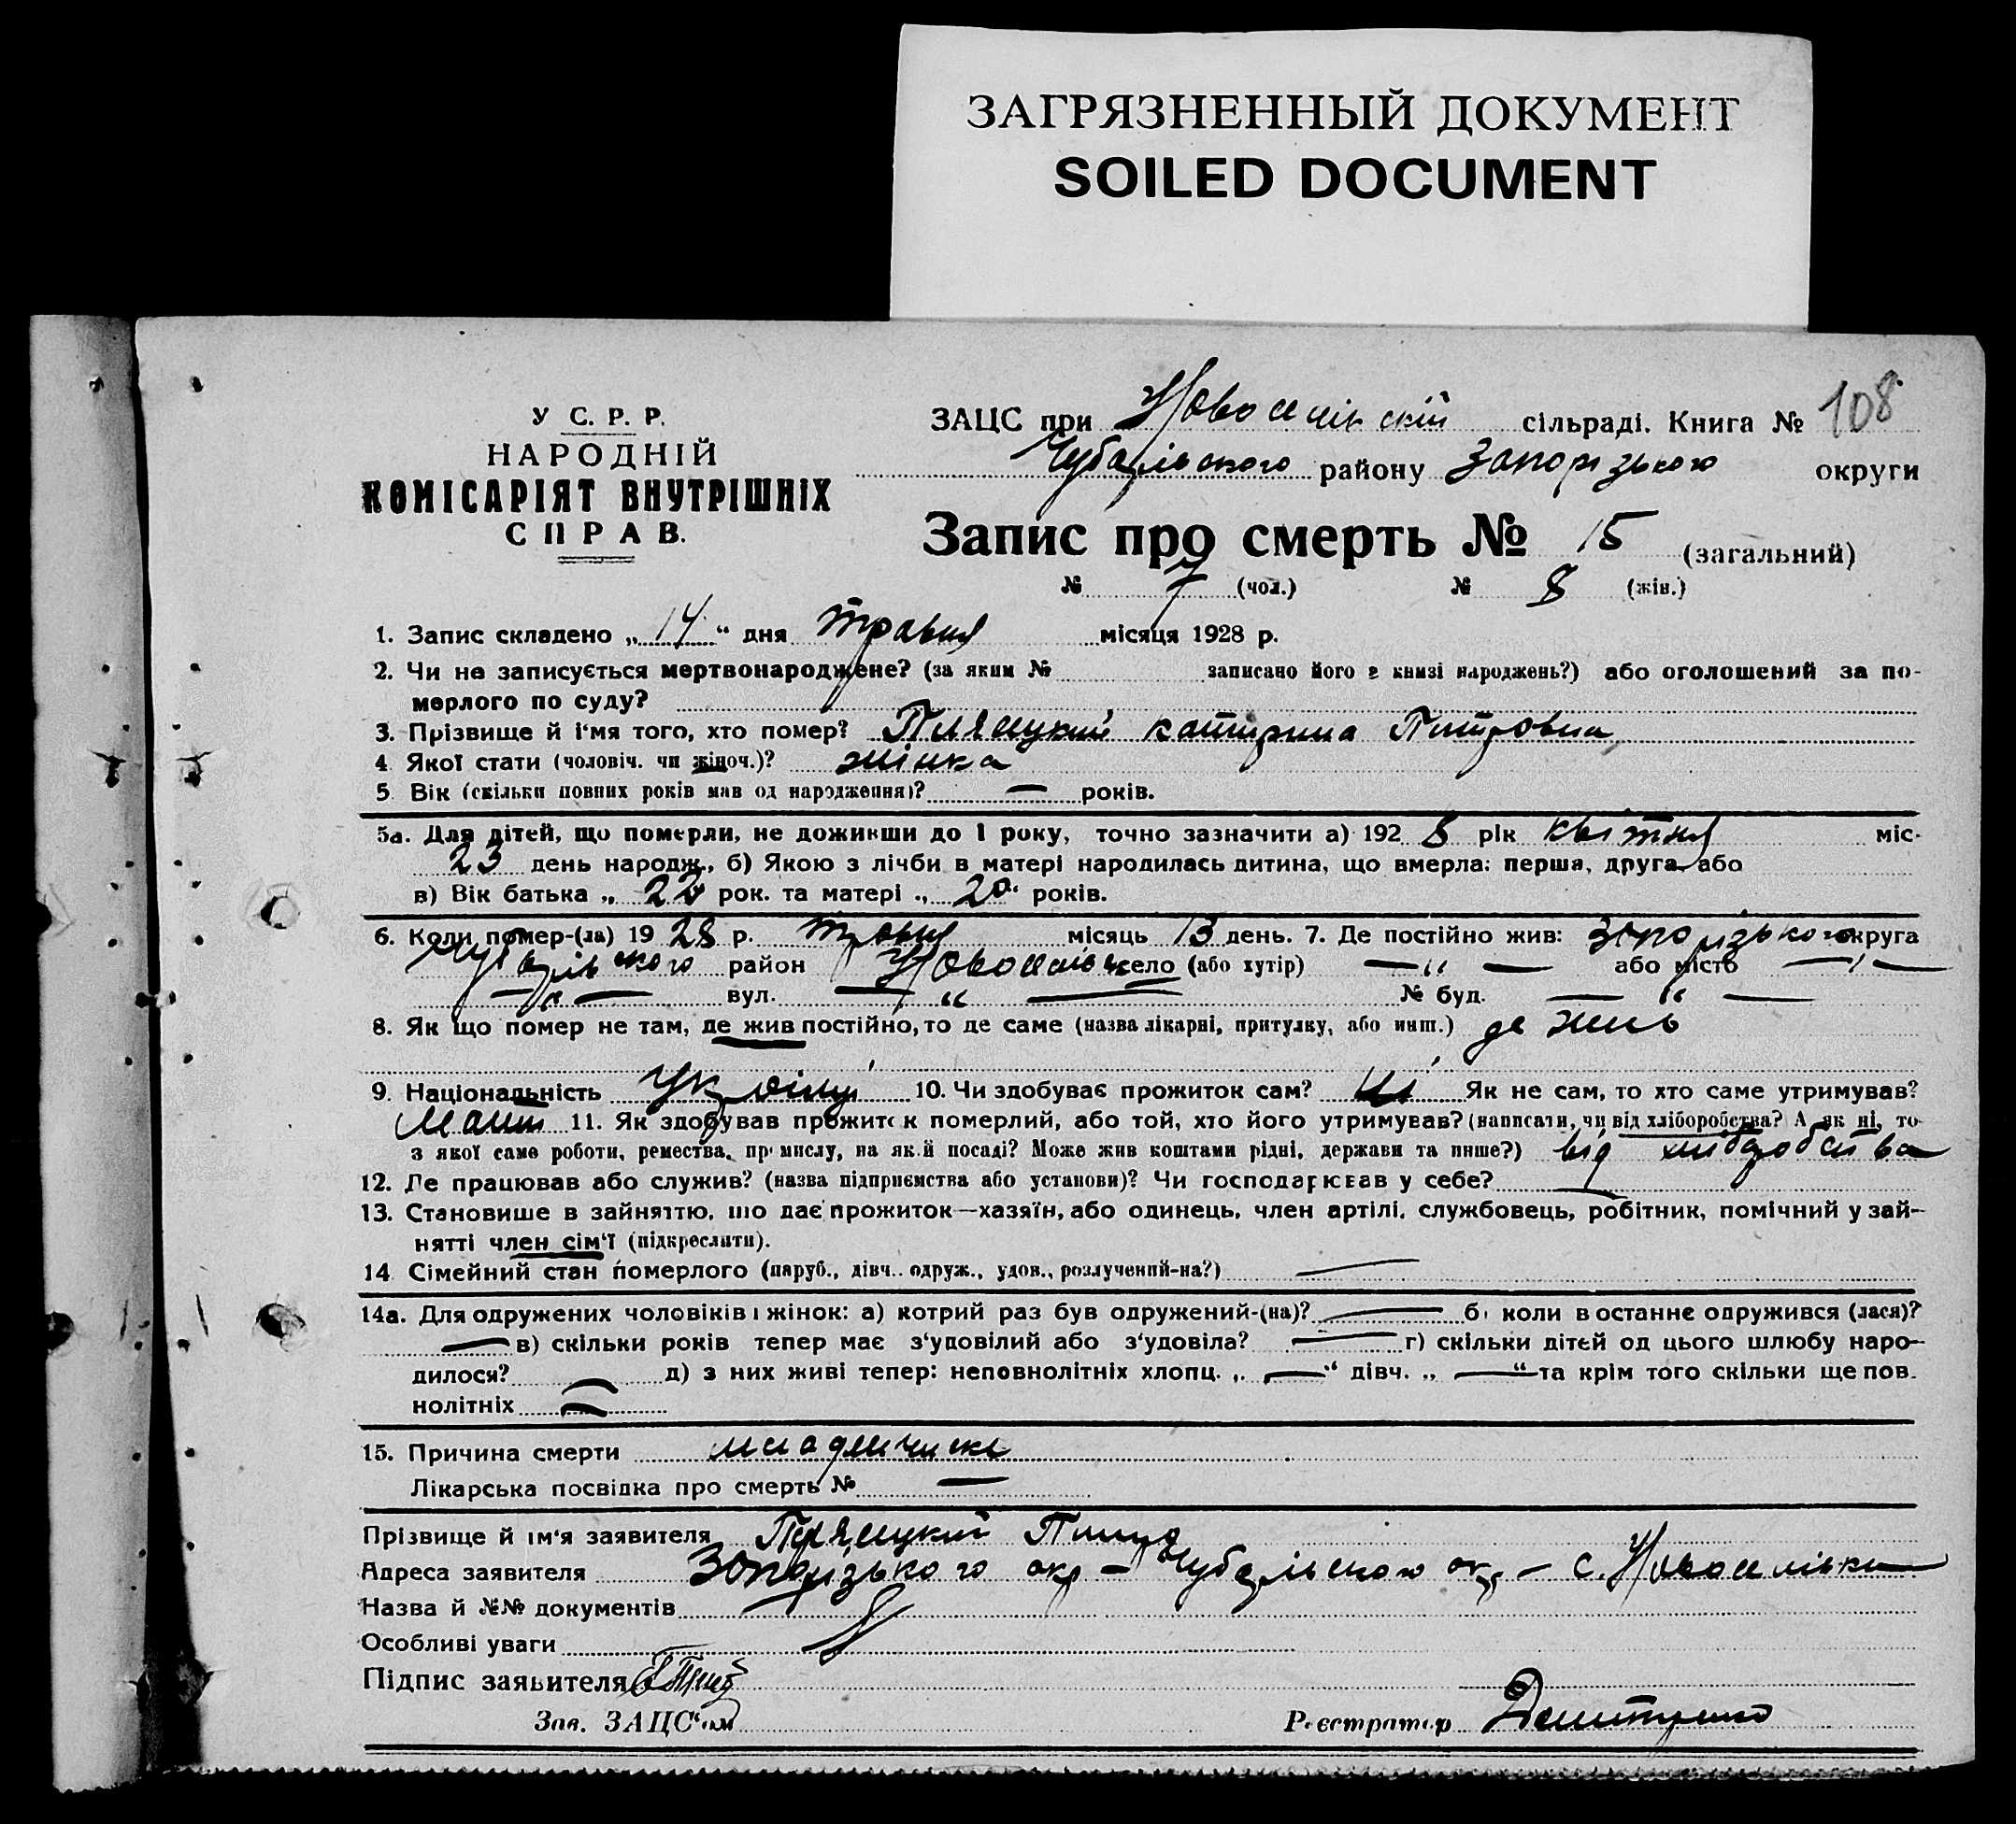 ЗАГРЯЗНЕННЫЙ ДОКУМЕНТ
SOILED DOCUMENT
108
У С. Р. Р.
НАРОДНІЙ
КОМІСАРІЯТ ВНУТРІШНІХ
СПРАВ.
ЗАЦС при Новоселівскій сільраді. Книга №
Чубарівського району Запорізького округи
Запис про смерть № 15 (загальний)
№ 7 (чол.) № 8 (жін.)
1. Запис складено „ 14 “ дня травня місяця 1928 р.
2. Чи не записується мертвонароджене? (за яким № записано його в книзі народжень?) або оголошений за по-
мерлого по суду?
3. Прізвище й і'мя того, хто помер? Катирина Питровна
4 Якої стати (чоловіч. чи жіноч.)? жінка
5. Вік (скільки повних років мав од народження)? — років.
5а. Для дітей, що померли, не доживши до 1 року, точно зазначити а) 192 8 рік квітня міс-
23 день народж., б) Якою з лічби в матері народилась дитина, що вмерла: перша, друга або
в) Вік батька „ 22 рок. та матері „ 20 “ років.
6. Коли помер-(ла) 19 28 р. травня місяць 13 день. 7. Де постійно жив: Запорізького округа
Чубарівського район село (або хутір) — “ — або місто — “ —
— “ — вул. — “ — № буд. — “ —
8. Як що помер не там, де жив постійно, то де саме (назва лікарні, притулку, або инш.) де
9. Національність 10. Чи здобуває прожиток сам? ні Як не сам, то хто саме утримував?
11. Як здобував прожиток померлий, або той, хто його утримував? (написати, чи від хліборобства? А як ні, то
з якої саме роботи, ремества, промислу, на якій посаді? Може жив коштами рідні, держави та инше?) від
12. Де працював або служив? (назва підприємства або установи)? Чи господарював у себе? —
13. Становище в зайняттю, що дає прожиток—хазяїн, або одинець, член артілі, службовець, робітник, помічний у зай-
нятті член сім'ї (підкреслити).
14. Сімейний стан померлого (паруб., дівч., одруж., удов., розлучений-на?) —
14а. Для одружених чоловіків і жінок: а) котрий раз був одружений-(на)? — б) коли в останнє одружився (лася)?
— в) скільки років тепер має з'удовілий або з'удовіла? — г) скільки дітей од цього шлюбу наро-
дилося? — д) з них живі тепер: неповнолітніх хлопц. „ — “ дівч. „ — “ та крім того скільки ще пов.
нолітніх —
15. Причина смерти
Лікарська посвідка про смерть № —
Прізвище й ім'я заявителя
Адреса заявителя Запорізького окр — с. Новоселівки
Назва й №№ документів
Особливі уваги
Підпис заявителя
Зав. ЗАЦС'ом Реєстратор